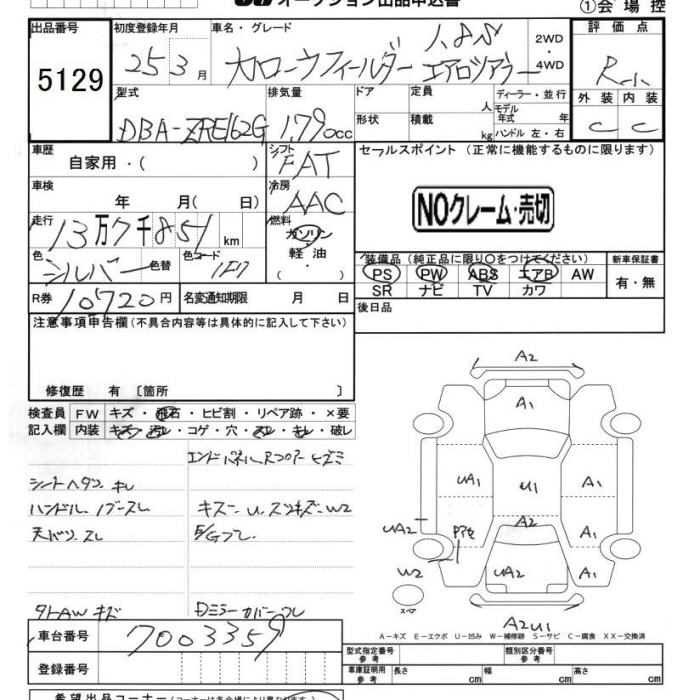 オークション出品申込書
①会場控
出品番号 初度登録年月 車名・グレード 評価点
5129 25 3月 カローラフィールダー 1.8S エアロツアラー 2WD・4WD R
外装 内装
C C
型式 排気量 ドア 定員 人 ディーラー・並行
DBA-ZRE162G 1,790cc 形状 積載 kg モデル年式 年 ハンドル 左・右
車歴 シフト セールスポイント (正常に機能するものに限ります)
自家用・( ) FAT
車検 冷房
年 月( 日) AAC NOクレーム・売切
走行 燃料
13万7千851km ガソリン
軽油
・( )
色 色替 色コード 装備品 (純正品に限り○をつけてください) 新車保証書
シルバー 1F7 PS PW ABS エアB AW 有・無
SR ナビ TV カワ
R券 10720円 名変通知期限 月 日 後日品
注意事項申告欄(不具合内容等は具体的に記入して下さい)
修復歴 有〔箇所 〕
検査員 FW キズ・飛石・ヒビ割・リペア跡・×要
記入欄 内装 キズ・汚レ・コゲ・穴・スレ・キレ・破レ
エンドパネル、Rフロアーヒズミ
シートヘタリ キレ
ハンドル、ノブースレ キズ、U、スリキズ、W2
天バリ、スレ E/Gブレ
タトAWキズ Dミラーカバーワレ
A2
A1
UA1 U1 A1
A2
UA2 A1
W2 UA2 A1
スペア
A2U1
A-キズ E-エクボ U-凹み W-補修跡 S-サビ C-腐食 XX-交換済
車台番号 7003359
登録番号
型式指定番号 参考 類別区分番号 参考
車庫証明用 参考 長さ cm 幅 cm 高さ cm
希望出品コーナー